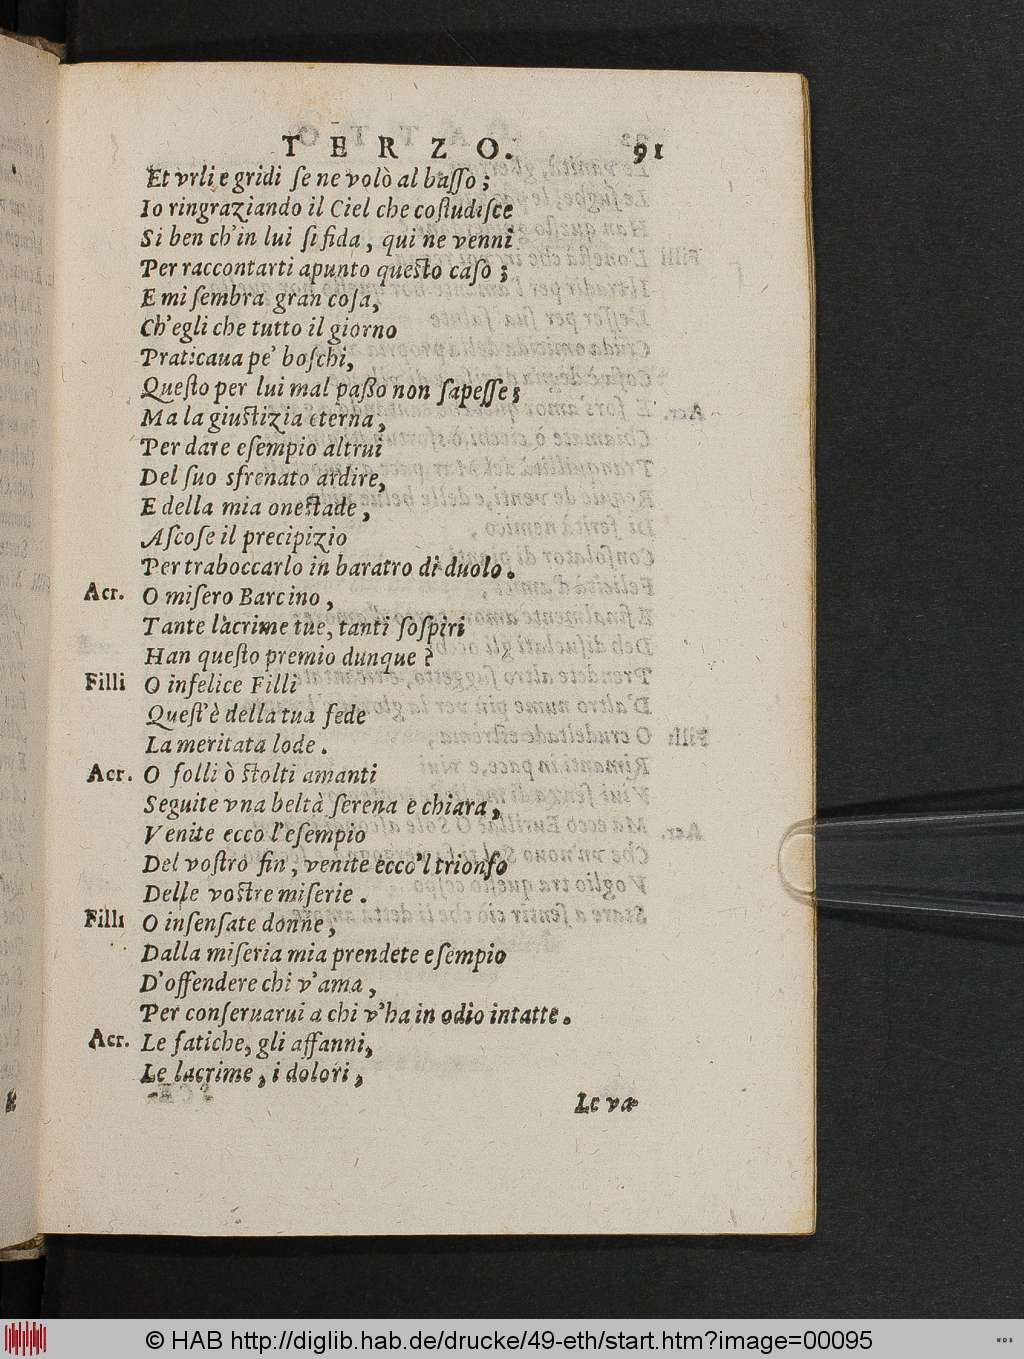 TERZO. 91
Et vrli e gridi ſe ne volò al baſſo;
Io ringraziando il Ciel che coſtudiſce
Si ben ch'in lui ſi fida, qui ne venni
Per raccontarti apunto queſto caſo;
E mi ſembra gran coſa,
Ch'egli che tutto il giorno
Praticaua pe' boſchi,
Queſto per lui mal paßo non ſapeſſe;
Ma la giuſtizia eterna,
Per dare eſempio altrui
Del ſuo sfrenato ardire,
E della mia oneſtade,
Aſcoſe il precipizio
Per traboccarlo in baratro di duolo.
Acr. O miſero Barcino,
Tante lacrime tue, tanti ſoſpiri
Han queſto premio dunque?
Filli O infelice Filli
Queſt'è della tua fede
La meritata lode.
Acr. O folli ò ſtolti amanti
Seguite vna beltà ſerena e chiara,
Venite ecco l'eſempio
Del voſtro fin, venite ecco'l trionfo
Delle voſtre miſerie.
Filli O inſenſate donne,
Dalla miſeria mia prendete eſempio
D'offendere chi v'ama,
Per conſeruarui a chi v'ha in odio intatte.
Acr. Le fatiche, gli affanni,
Le lacrime, i dolori,
Le va-
© HAB http://diglib.hab.de/drucke/49-eth/start.htm?image=00095